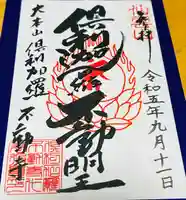 奉拝
令和五年九月十一日
倶利迦羅不動明王
大本山倶利加羅不動寺